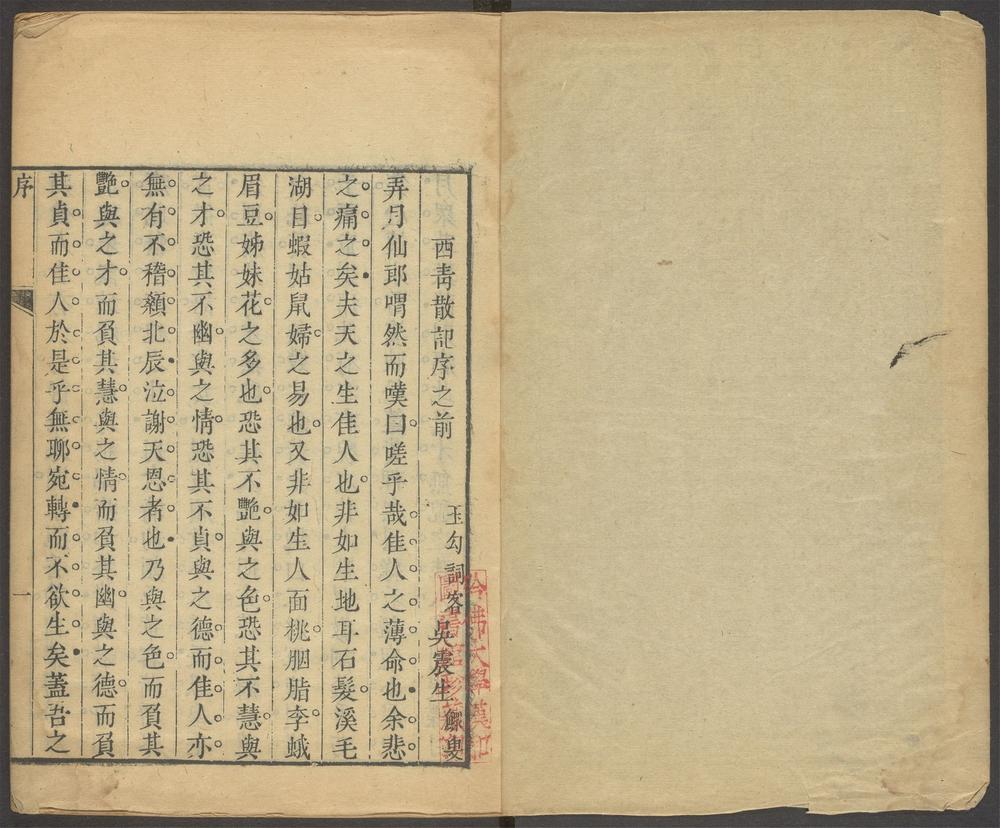 西青散記序之前
玉勾詞客吳震生鰥叟
弄月仙郎喟然而嘆曰嗟乎哉佳人之薄命也余悲
之痛之矣夫天之生佳人也非如生地耳石髮溪毛
湖目蝦姑鼠婦之易也又非如生人面桃胭脂李蛾
眉豆姊妹花之多也恐其不艷與之色恐其不慧與
之才恐其不幽與之情恐其不貞與之德而佳人亦
無有不稽顙北辰泣謝天恩者也乃與之色而負其
艷與之才而負其慧與之情而負其幽與之德而負
其貞而佳人於是乎無聊宛轉而不欲生矣蓋吾之
序
一
哈佛大學漢和
圖書館珍藏印